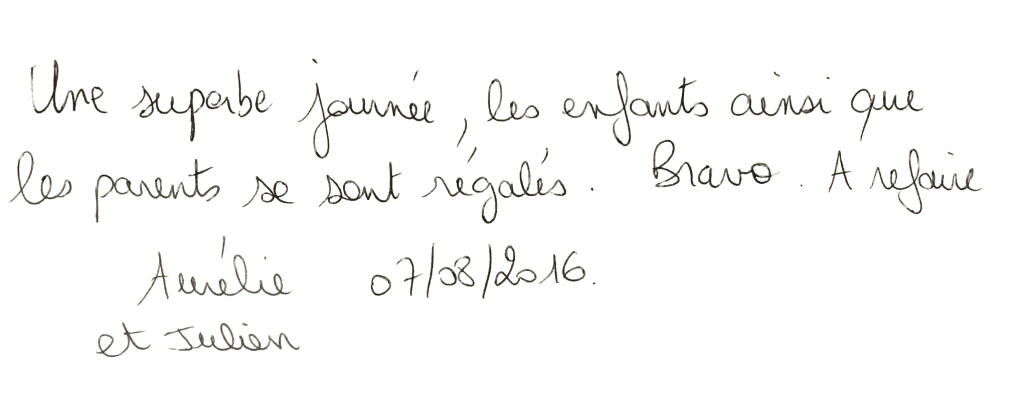 Une superbe journée, les enfants ainsi que
les parents se sont régalés. Bravo. A refaire
Aurélie 07/08/2016.
et Julien